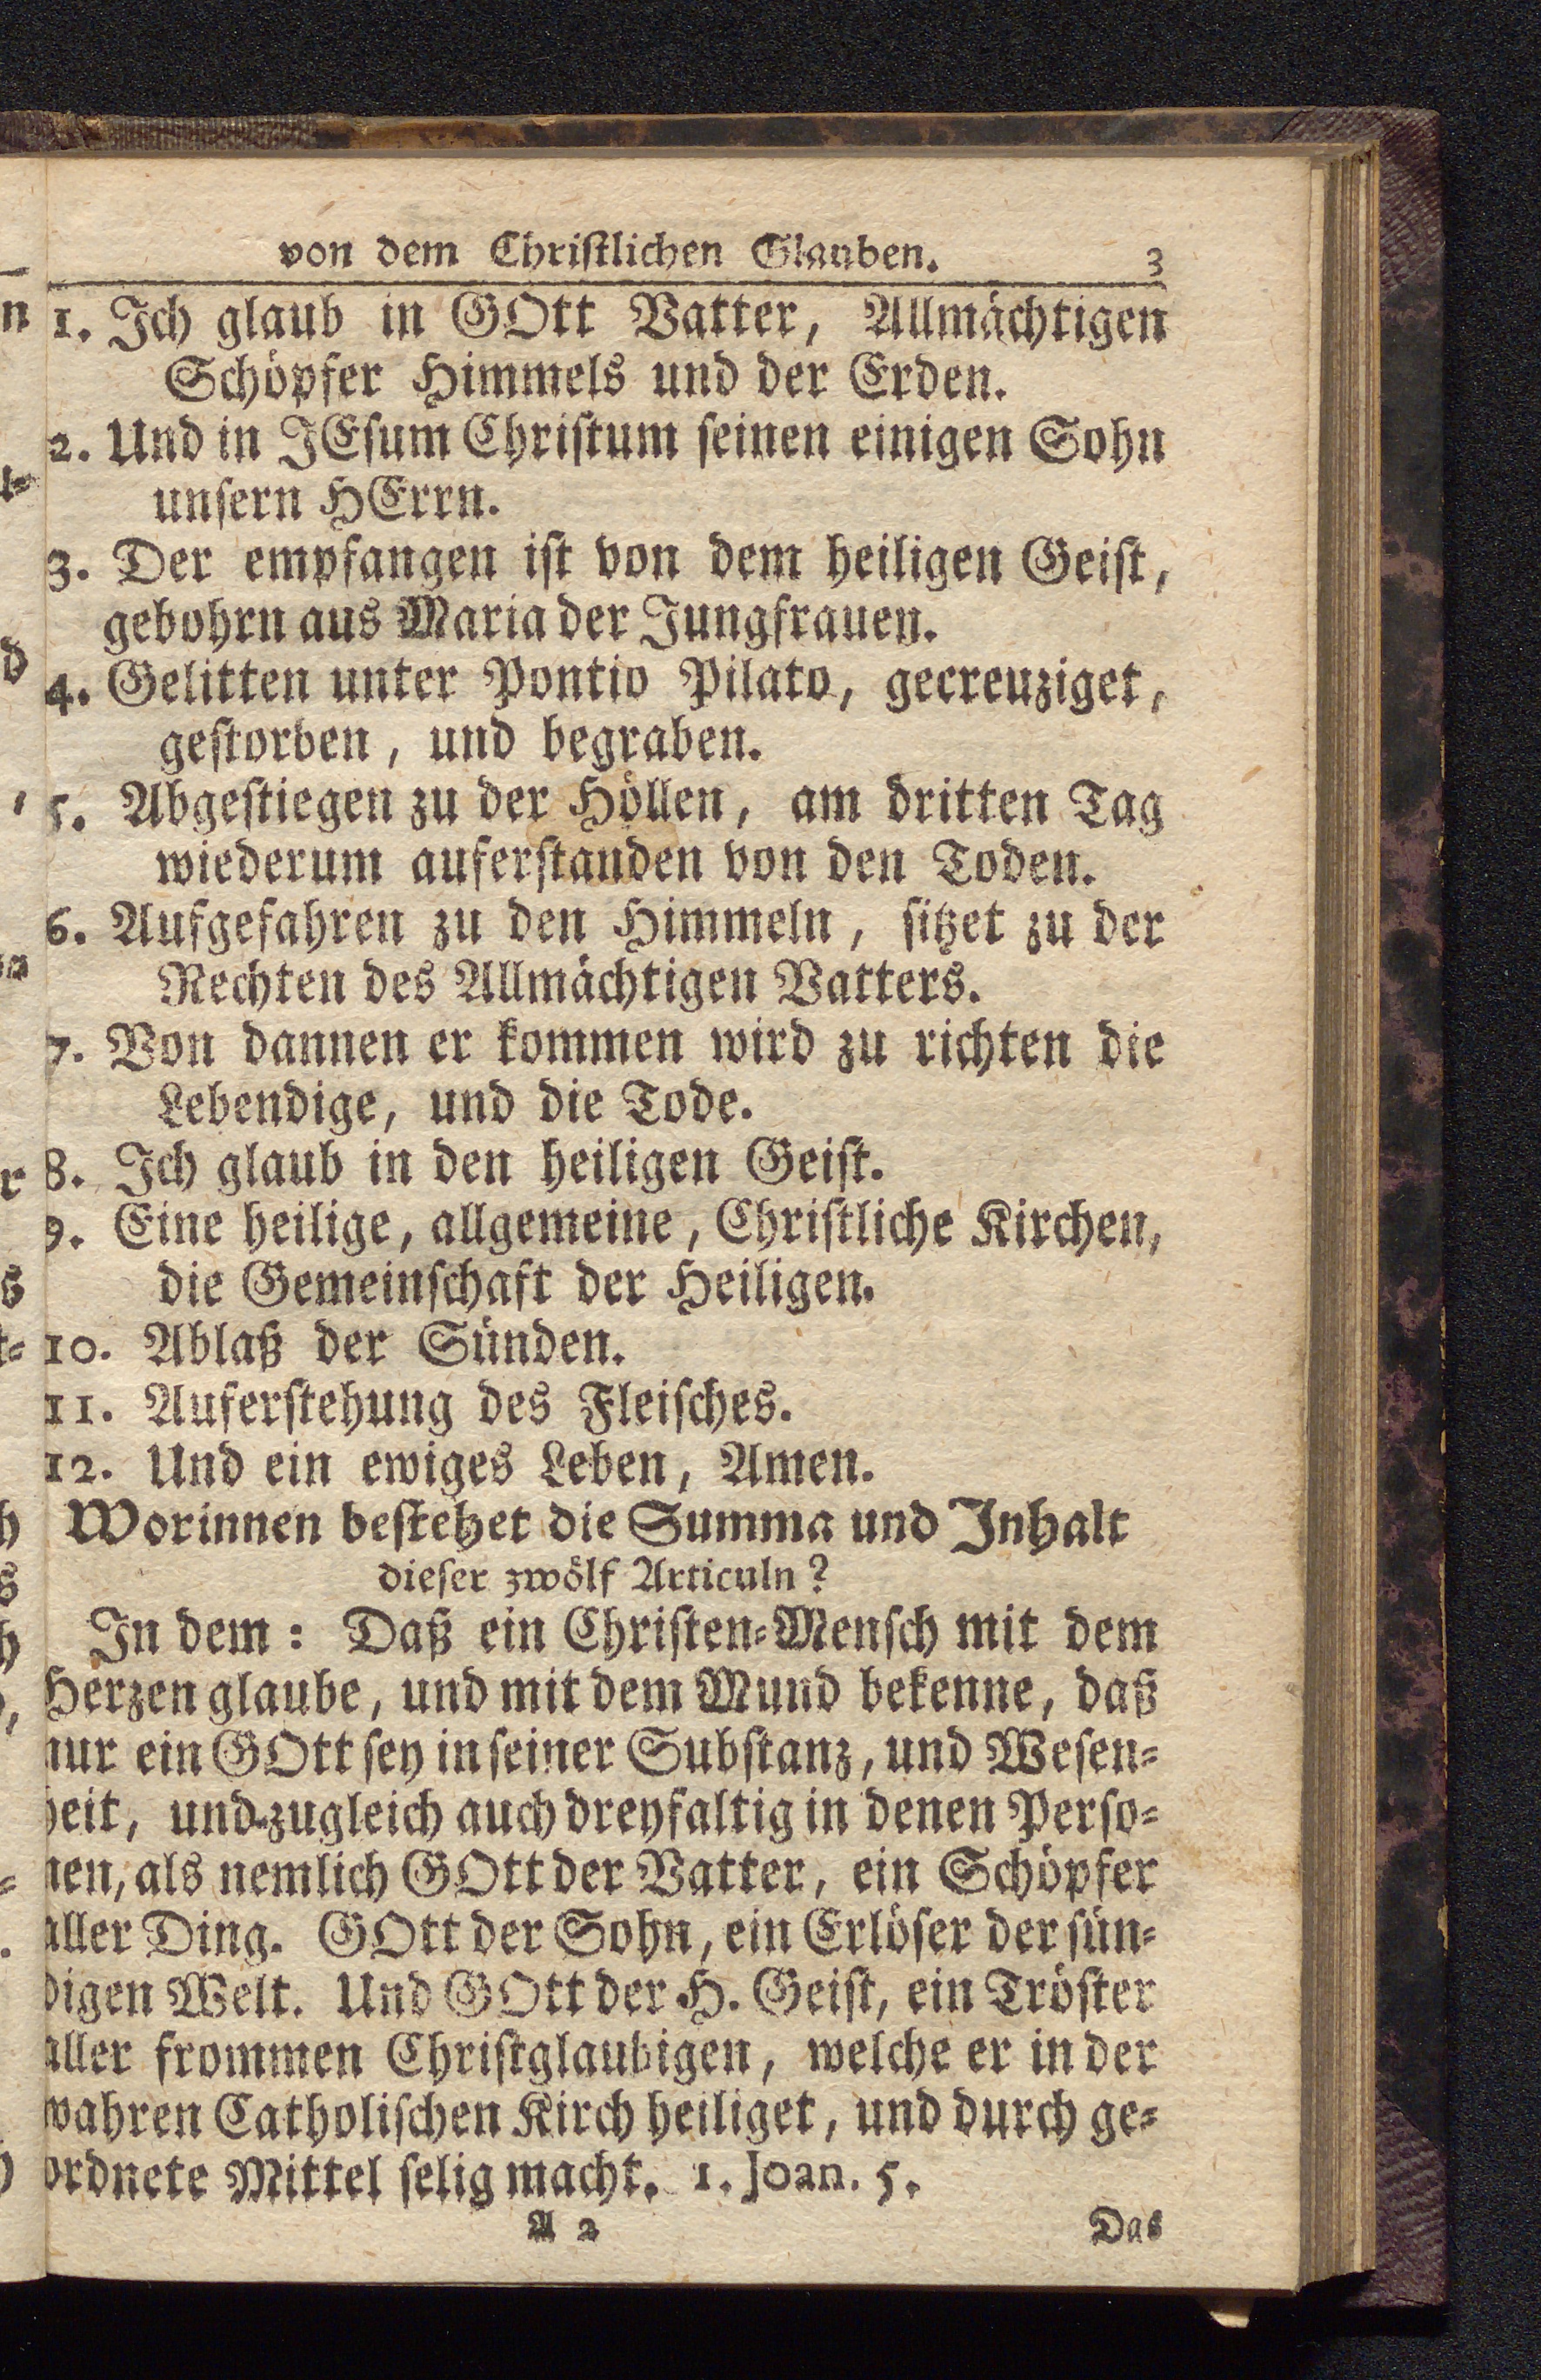 von dem Christlichen Glauben. 3
1. Ich glaub in GOtt Vatter, Allmächtigen
Schöpfer Himmels und der Erden.
2. Und in JEsum Christum seinen einigen Sohn
unsern HErrn.
3. Der empfangen ist von dem heiligen Geist,
gebohrn aus Maria der Jungfrauen.
4. Gelitten unter Pontio Pilato, gecreuziget,
gestorben, und begraben.
5. Abgestiegen zu der Höllen, am dritten Tag
wiederum auferstanden von den Toden.
6. Aufgefahren zu den Himmeln, sitzet zu der
Rechten des Allmächtigen Vatters.
7. Von dannen er kommen wird zu richten die
Lebendige, und die Tode.
8. Ich glaub in den heiligen Geist.
9. Eine heilige, allgemeine, Christliche Kirchen,
die Gemeinschaft der Heiligen.
10. Ablaß der Sünden.
11. Auferstehung des Fleisches.
12. Und ein ewiges Leben, Amen.
Worinnen bestehet die Summa und Inhalt
dieser zwölf Articuln?
In dem: Daß ein Christen-Mensch mit dem
Herzen glaube, und mit dem Mund bekenne, daß
nur ein GOtt sey in seiner Substanz, und Wesen-
heit, und zugleich auch dreyfaltig in denen Perso-
nen, als nemlich GOtt der Vatter, ein Schöpfer
aller Ding. GOtt der Sohn, ein Erlöser der sün-
digen Welt. Und GOtt der H. Geist, ein Tröster
aller frommen Christglaubigen, welche er in der
wahren Catholischen Kirch heiliget, und durch ge-
ordnete Mittel selig macht. 1. Joan. 5.
A 2 Das